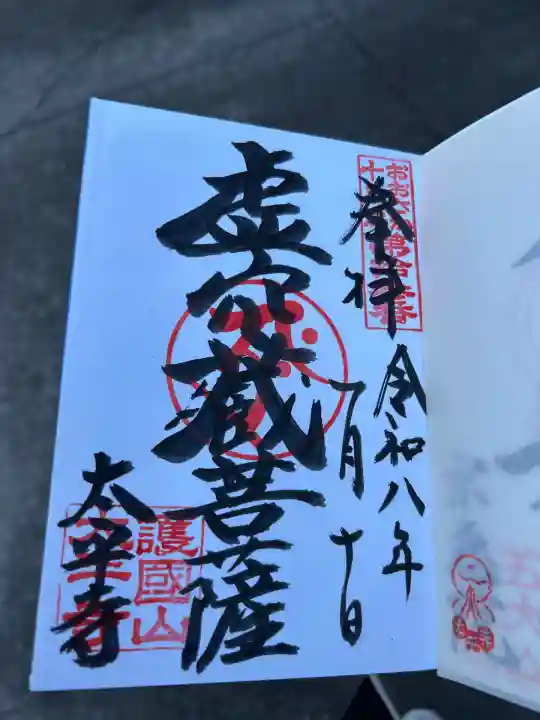 奉拝
令和八年
一月十日
虚空蔵菩薩
太平寺
護國山